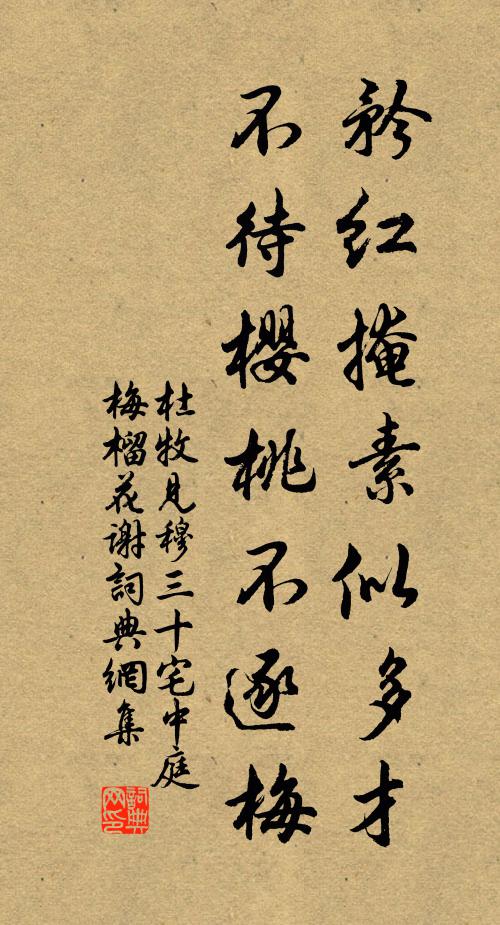 矜紅掩素似多才
不待櫻桃不逐梅
杜牧見穆三十宅中庭
梅榴花謝詞典網集
詞典
网印